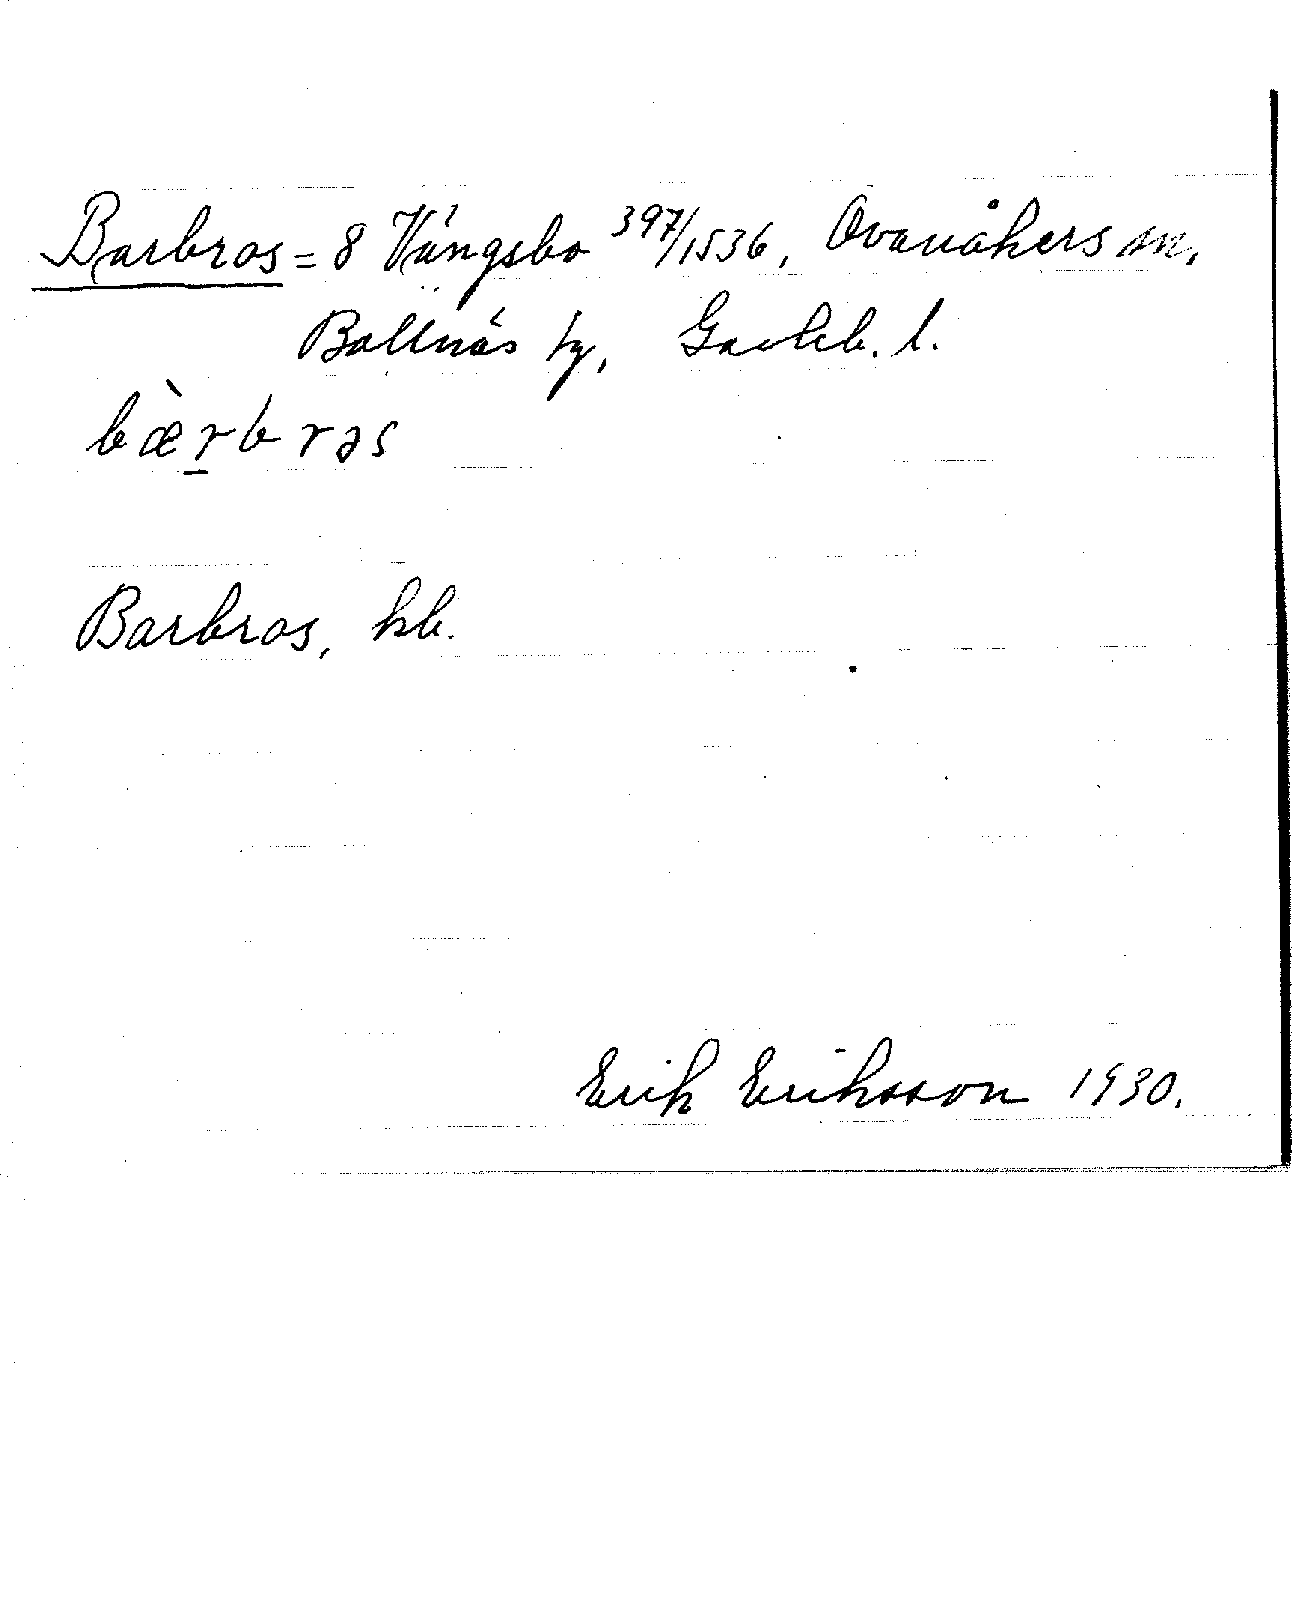 Barbros = 8 Vängsbo 397/1536, Ovanåkers sn,
Bollnäs tg, Gävleb. l.
bæ̀r̠brəs
Barbros, kb.
Erik Eriksson 1930.